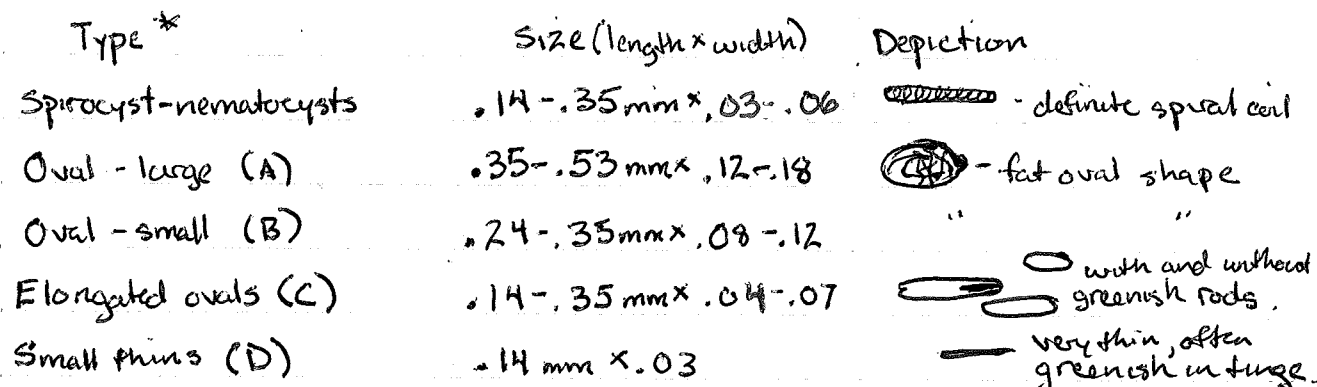 Type * Size (length x width) Depiction
Spirocyst-nematocysts .14-.35mm x .03-.06 - definite spiral coil
Oval - large (A) .35-.53 mm x .12-.18 - fat oval shape
Oval - small (B) .24-.35mm x .08-.12 " "
Elongated ovals (C) .14-.35 mm x .04-.07 with and without greenish rods.
Small thins (D) .14 mm x .03 very thin, often greenish in tinge.